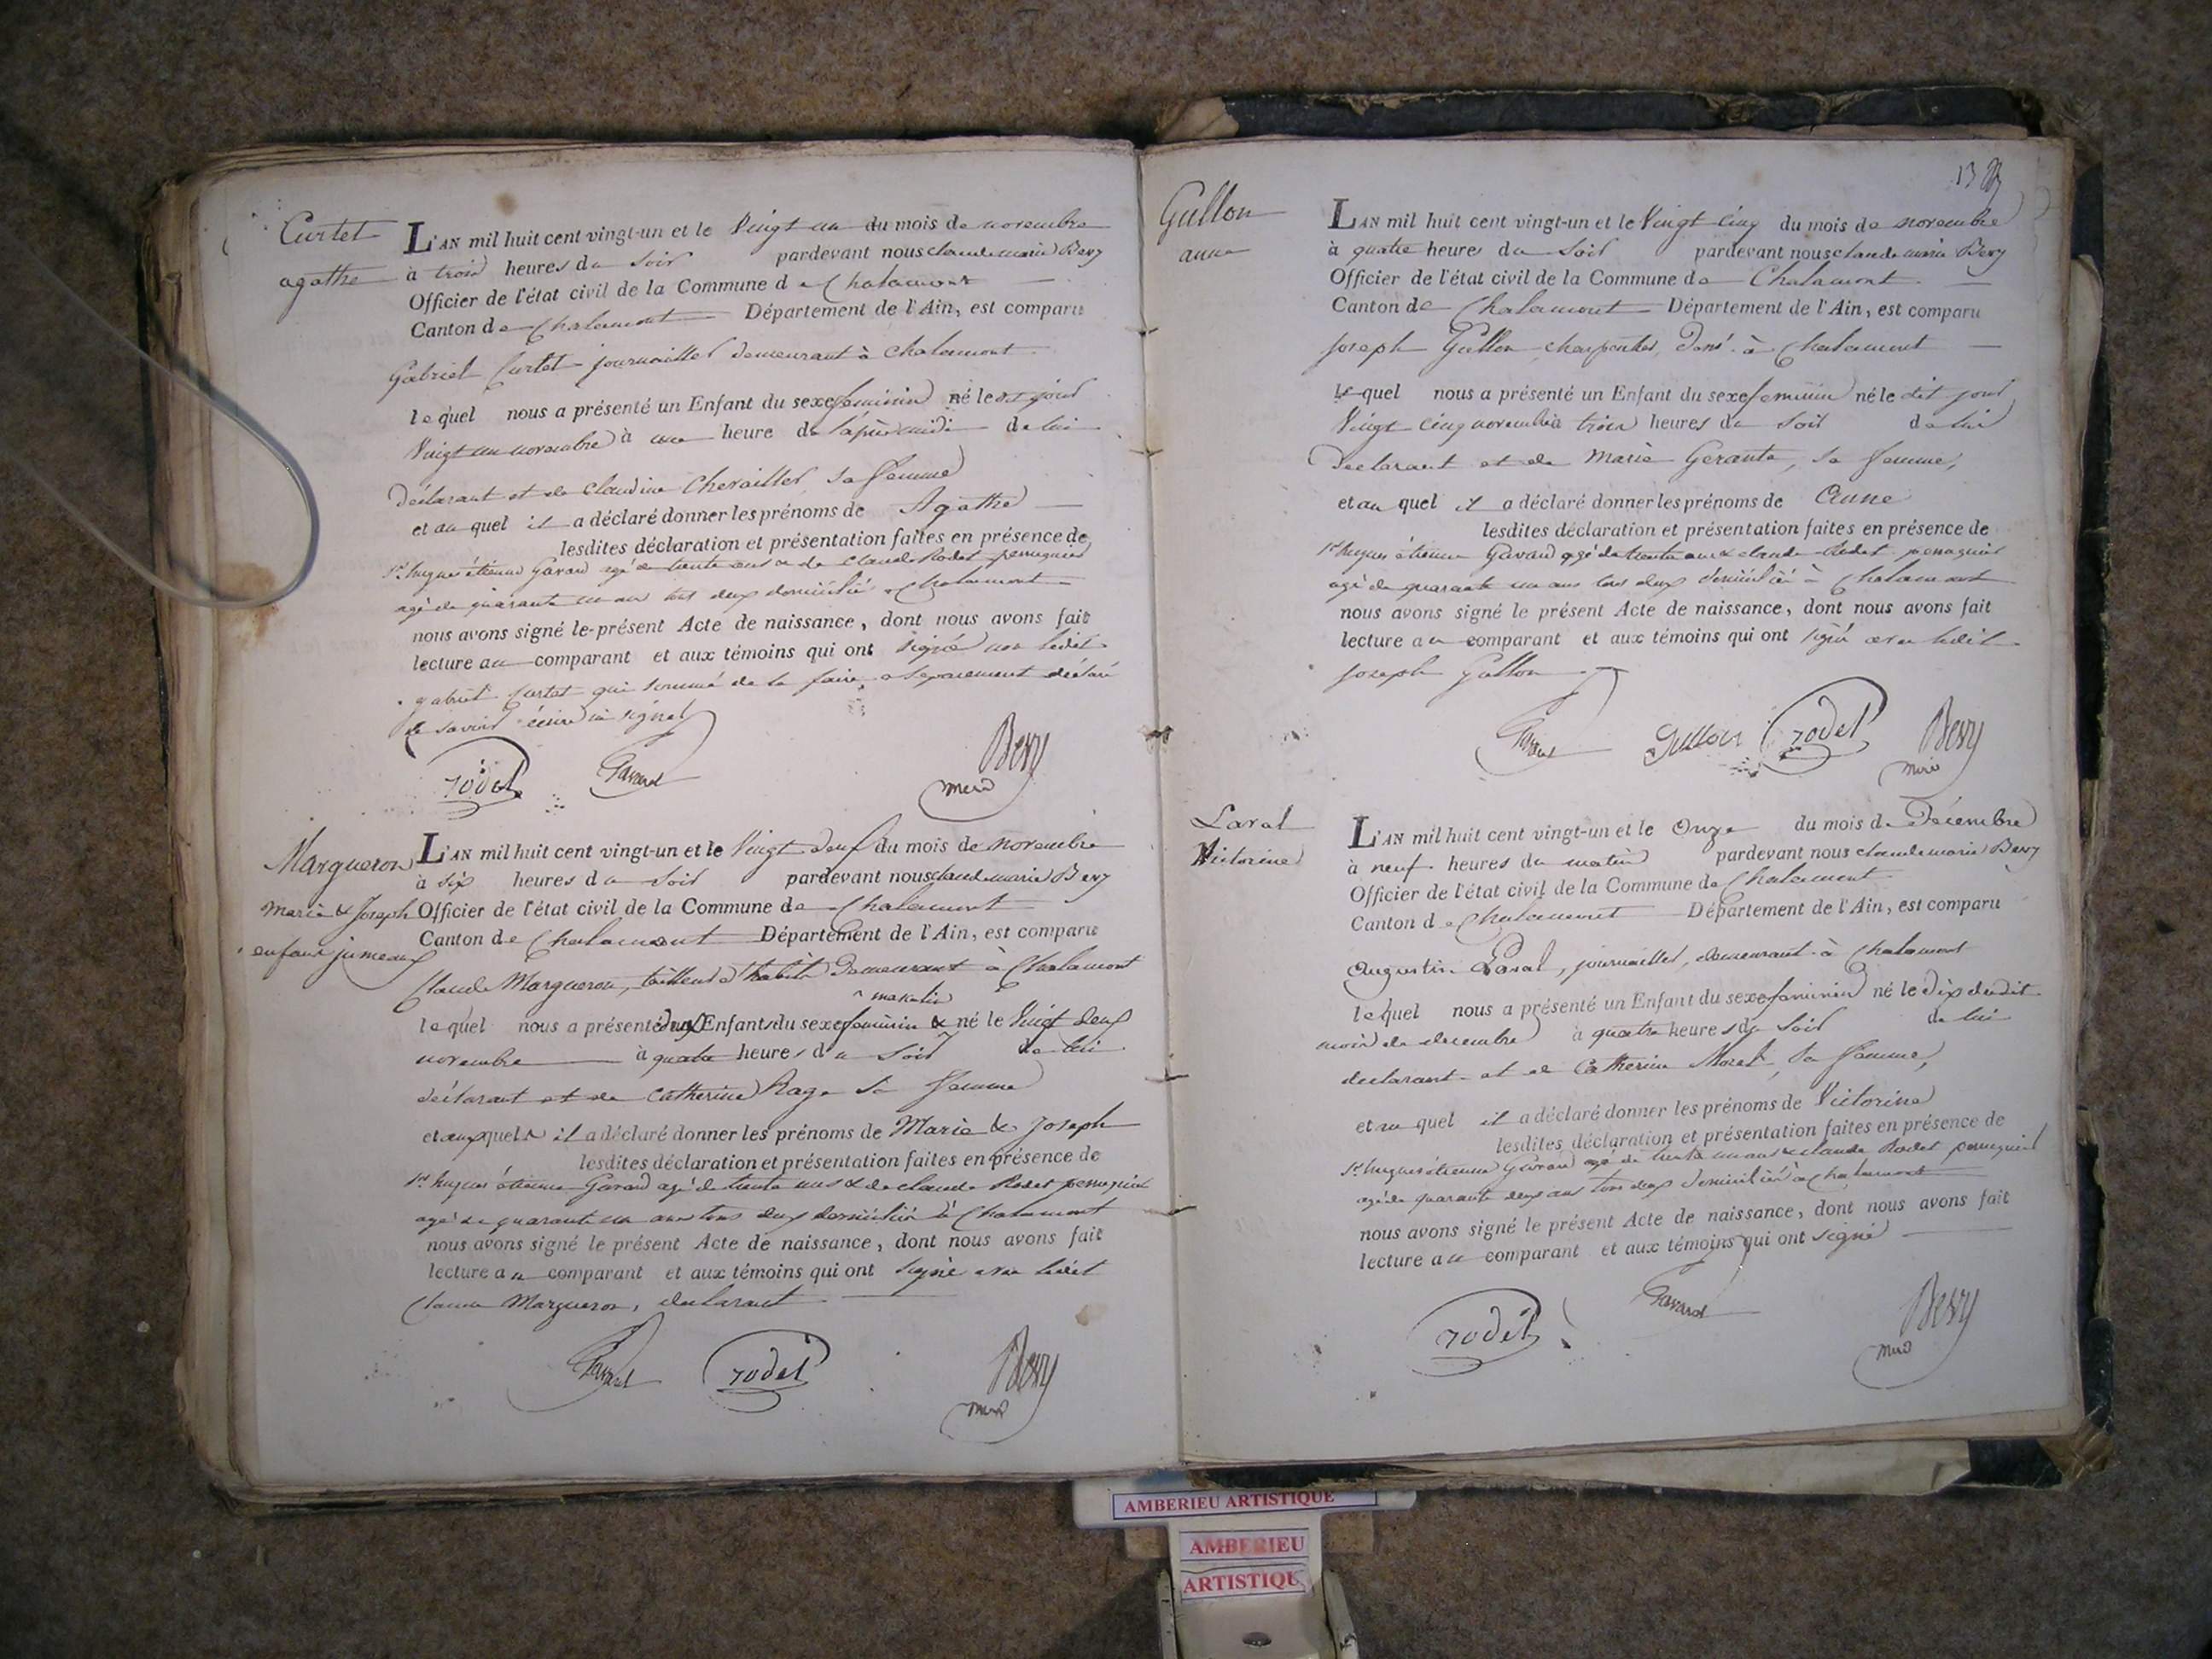 Curtet
agathe
L'AN mil huit cent vingt-un et le Vingt un du mois de novembre
à trois heures du soir pardevant nous claude marie Bevy
Officier de l'état civil de la Commune de Chalamont
Canton de Chalamont Département de l'Ain, est comparu
Gabriel Curtet journaillier demeurant à Chalamont
lequel nous a présenté un Enfant du sexe feminin né le dit jour
Vingt un novembre à une heure de l'après midi de lui
Déclarant et de Claudine Chevaillier, sa femme
et au quel il a déclaré donner les prénoms de Agathe
lesdites déclaration et présentation faites en présence de
Sr. hugues étienne Gavard agé de trente ans & de Claude Rodet perruquier
agé de quarante un ans tous deux domiciliés à Chalamont
nous avons signé le présent Acte de naissance, dont nous avons fait
lecture au comparant et aux témoins qui ont signé non ledit
gabriel Curtet qui sommé de le faire, a séparement déclaré
ne savoir écrire ni signer
rodet Gavard Bevy
mere
Margueron
Marie & Joseph
enfans jumeaux
L'AN mil huit cent vingt-un et le Vingt deux du mois de novembre
à six heures du soir pardevant nous claude marie Bevy
Officier de l'état civil de la Commune de Chalamont
Canton de Chalamont Département de l'Ain, est comparu
Claude Margueron, tailleur d'habits Demeurant à Chalamont
masculin
lequel nous a présenté deux Enfants du sexe feminin & né le Vingt deux
novembre à quatre heures du soir de lui
déclarant et de Catherine Rage sa femme
et auxquels il a déclaré donner les prénoms de Marie & Joseph
lesdites déclaration et présentation faites en présence de
Sr. hugues étienne Gavard agé de trente ans & de claude Rodet perruquier
agé de quarante un ans tous deux domiciliés à Chalamont
nous avons signé le présent Acte de naissance, dont nous avons fait
lecture au comparant et aux témoins qui ont signé avec ledit
Claude Margueron, declarant
Gavard rodet Bevy
mere
Gullon
anne
L'AN mil huit cent vingt-un et le Vingt cinq du mois de novembre
à quatre heures du soir pardevant nous claude marie Bevy
Officier de l'état civil de la Commune de Chalamont
Canton de Chalamont Département de l'Ain, est comparu
Joseph Gullon charpentier, demt. à Chalamont
lequel nous a présenté un Enfant du sexe feminin né le dit jour
Vingt cinq novembre à trois heures du soir de lui
Declarant et de Marie Gerante, sa femme,
et au quel il a déclaré donner les prénoms de Anne
lesdites déclaration et présentation faites en présence de
Sr. hugues étienne Gavard agé de trente ans & claude Rodet perruquier
agé de quarante un ans tous deux domiciliés à Chalamont
nous avons signé le présent Acte de naissance, dont nous avons fait
lecture au comparant et aux témoins qui ont signé avec ledit
Joseph Gullon
Gavard Gullon rodet Bevy
mere
Laval
Victorine
L'AN mil huit cent vingt-un et le Onze du mois de Décembre
à neuf heures du matin pardevant nous claude marie Bevy
Officier de l'état civil de la Commune de Chalamont
Canton de Chalamont Département de l'Ain, est comparu
Augustin Laval, journaillier, demeurant à Chalamont
lequel nous a présenté un Enfant du sexe feminin né le Dix dudit
mois de decembre à quatre heures du soir de lui
declarant et de Catherine Morel, sa femme,
et au quel il a déclaré donner les prénoms de Victorine
lesdites déclaration et présentation faites en présence de
Sr. hugues étienne Gavard agé de trente un ans & claude Rodet perruquier
agé de quarante deux ans tous deux domiciliés à Chalamont
nous avons signé le présent Acte de naissance, dont nous avons fait
lecture au comparant et aux témoins qui ont signé
rodet Gavard Bevy
mere
AMBERIEU ARTISTIQUE
AMBERIEU
ARTISTIQU